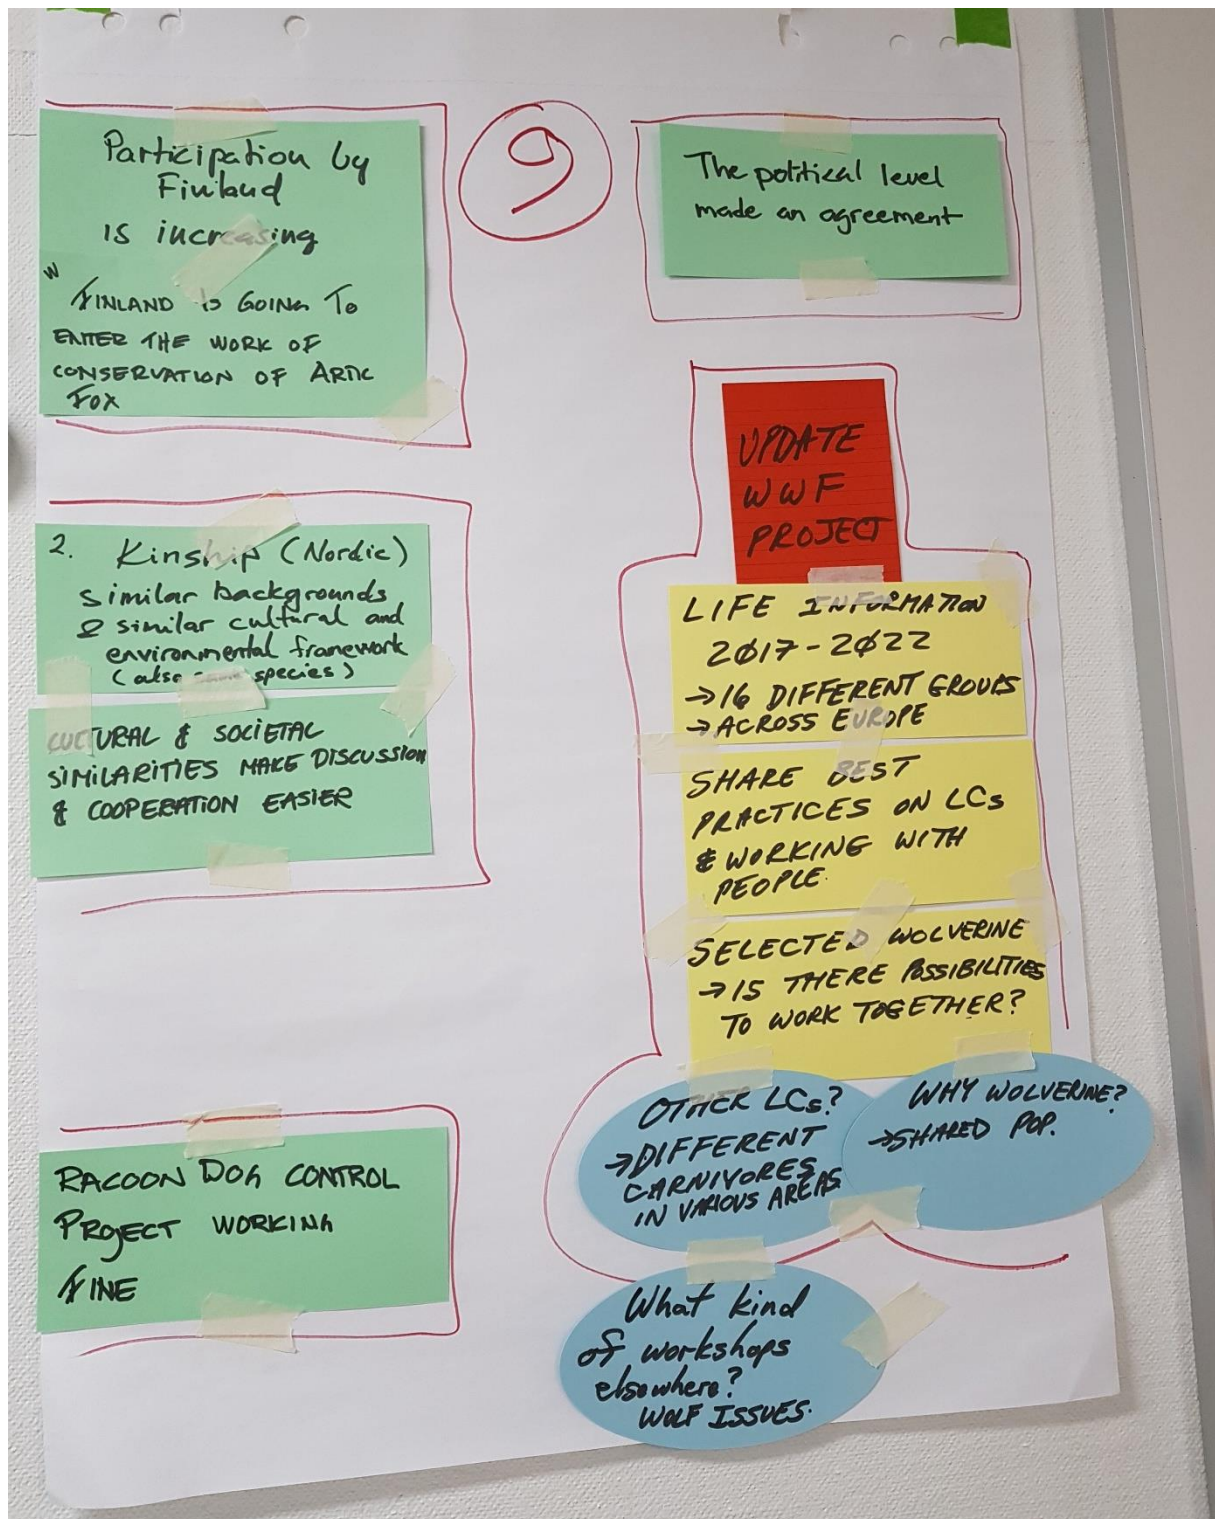 9
Participation by
Finland
is increasing
W
FINLAND IS GOING TO
ENTER THE WORK OF
CONSERVATION OF ARTIC
FOX
2. Kinship (Nordic)
similar backgrounds
& similar cultural and
environmental framework
(also same species)
CULTURAL & SOCIETAL
SIMILARITIES MAKE DISCUSSION
& COOPERATION EASIER
RACOON DOG CONTROL
PROJECT WORKING
FINE
The political level
made an agreement
UPDATE
WWF
PROJECT
LIFE INFORMATION
2017-2022
→ 16 DIFFERENT GROUPS
→ ACROSS EUROPE
SHARE BEST
PRACTICES ON LCs
& WORKING WITH
PEOPLE.
SELECTED WOLVERINE
→ IS THERE POSSIBILITIES
TO WORK TOGETHER?
OTHER LCs?
→ DIFFERENT
CARNIVORES
IN VARIOUS AREAS
WHY WOLVERINE?
→ SHARED POP.
What kind
of workshops
elsewhere?
WOLF ISSUES.